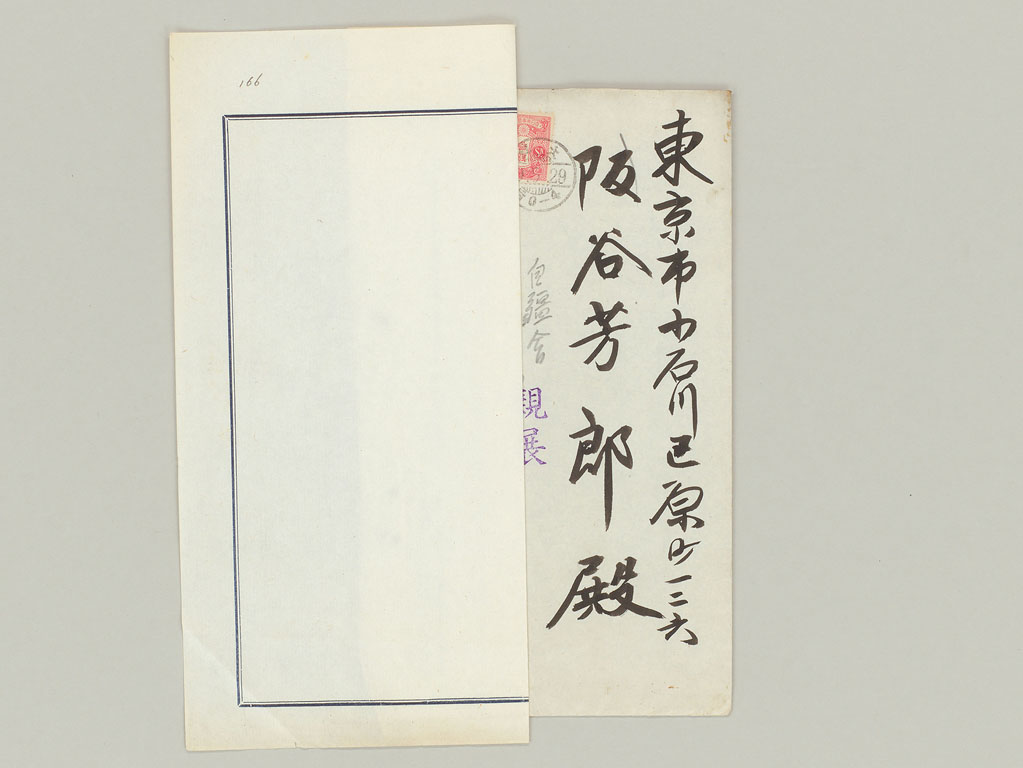 東京市小石川区原町一二六
阪谷芳郎殿
自彊會
親展
29
166